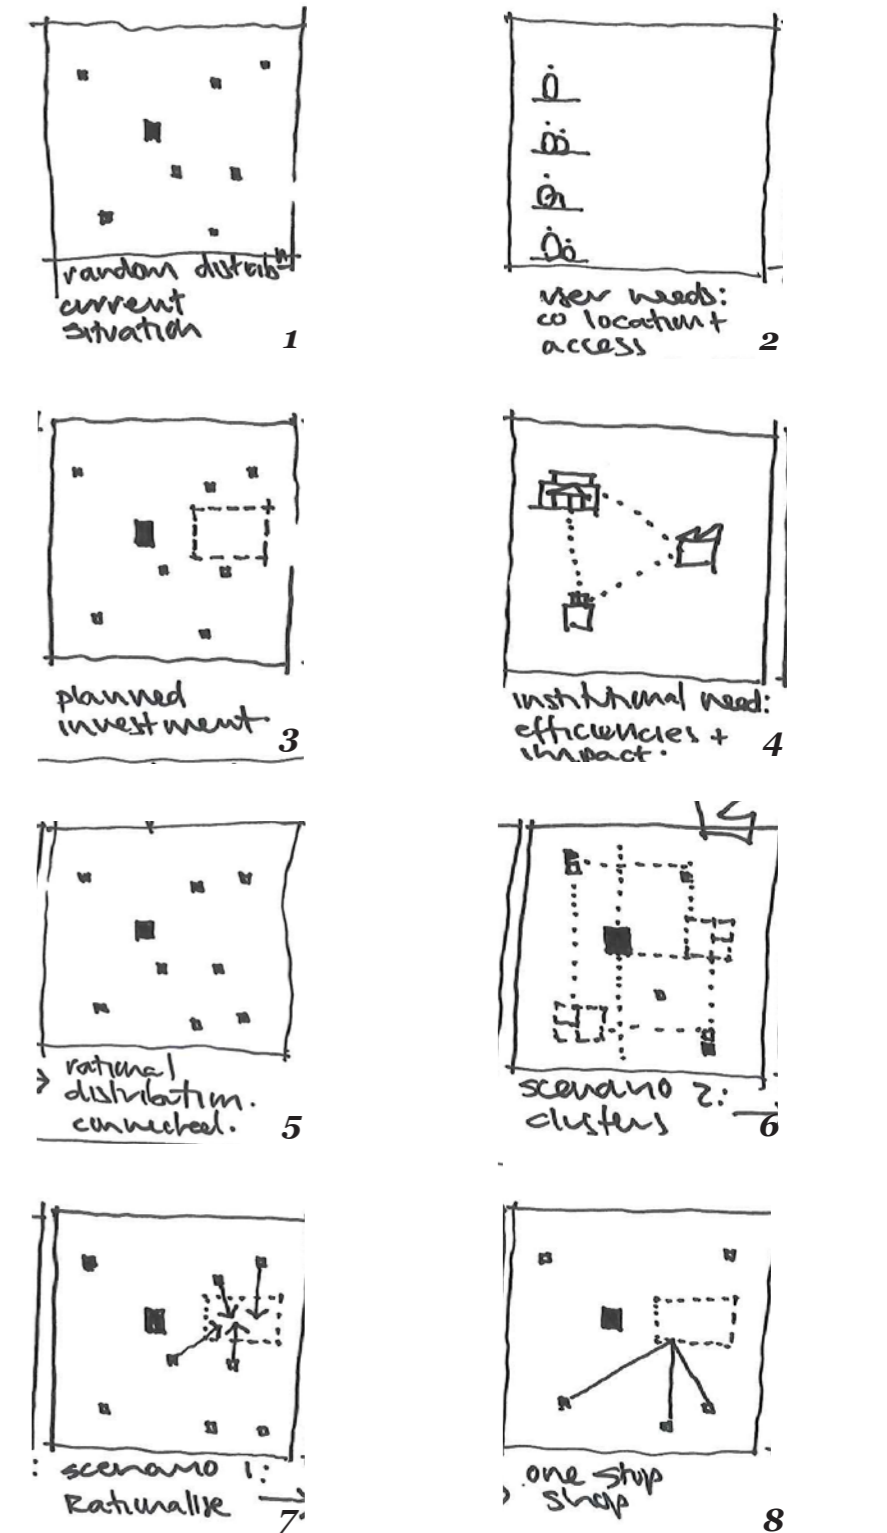 random distribⁿ
current
situation
1
user needs:
co location +
access
2
planned
investment
3
institutional need:
efficiencies +
impact.
4
rational
distribution.
connected.
5
scenario 2:
clusters
6
: scenario 1:
Rationalise
7
one stop
shop
8